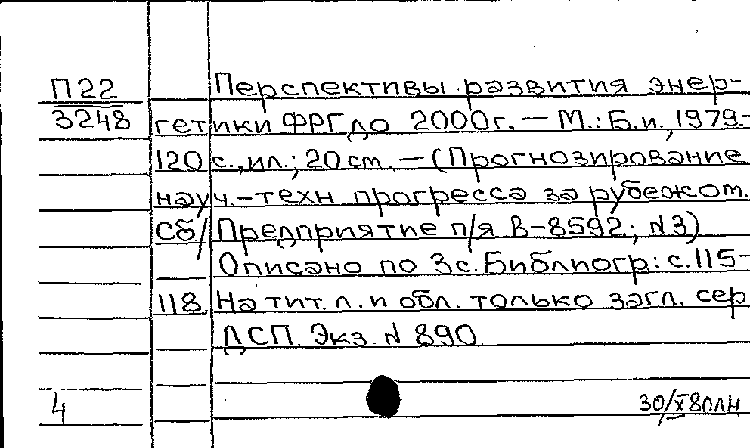 П22
3248
Перспективы развития энер-
гетики ФРГ до 2000г. — М.: Б.и., 1979.-
120 с., ил.; 20 см. — (Прогнозирование
науч.-техн прогресса за рубежом.
Сб/Предприятие п/я В-8592; N3)
Описано по 3с. Библиогр: с. 115-
118. На тит. л. и обл. только загл. сер
ДСП Экз. N 890
4